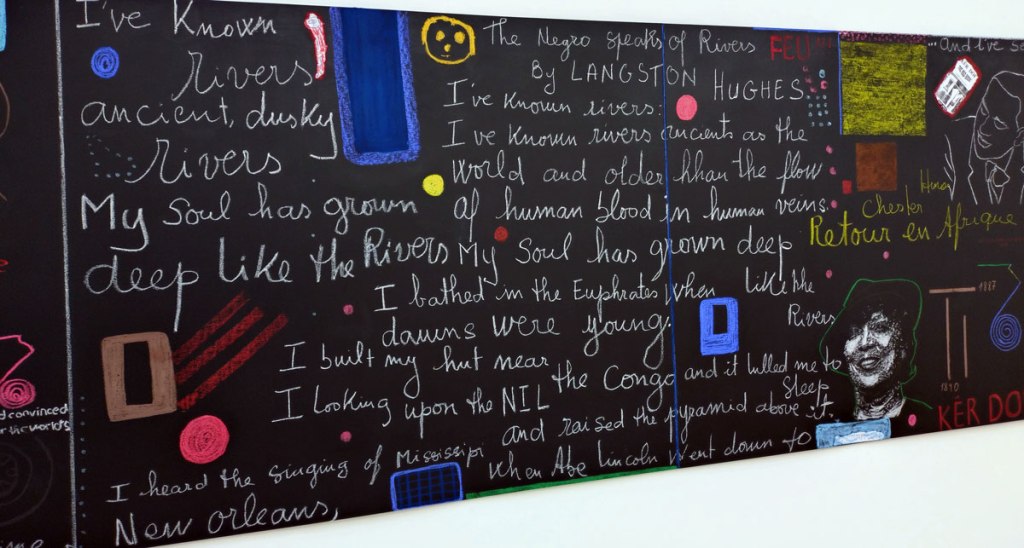 I've Known
rivers,
ancient, dusky
rivers
My Soul has grown
deep like the Rivers
The Negro Speaks of Rivers
By LANGSTON HUGHES
I've known rivers:
I've known rivers ancients as the
world and older hhan the flow
of human blood in human veins.
My Soul has grown deep
like the
Rivers
I bathed in the Euphrates when
dawns were young.
I built my hut near the Congo and it lulled me to
Sleep
I Looking upon the NIL
and raised the pyramid above it.
I heard the singing of Mississipi
when Abe Lincoln went down to
New Orleans,
FEU
...And I've se
Chester
Retour en Afrique
1887
1840
KËR DO
d convinced